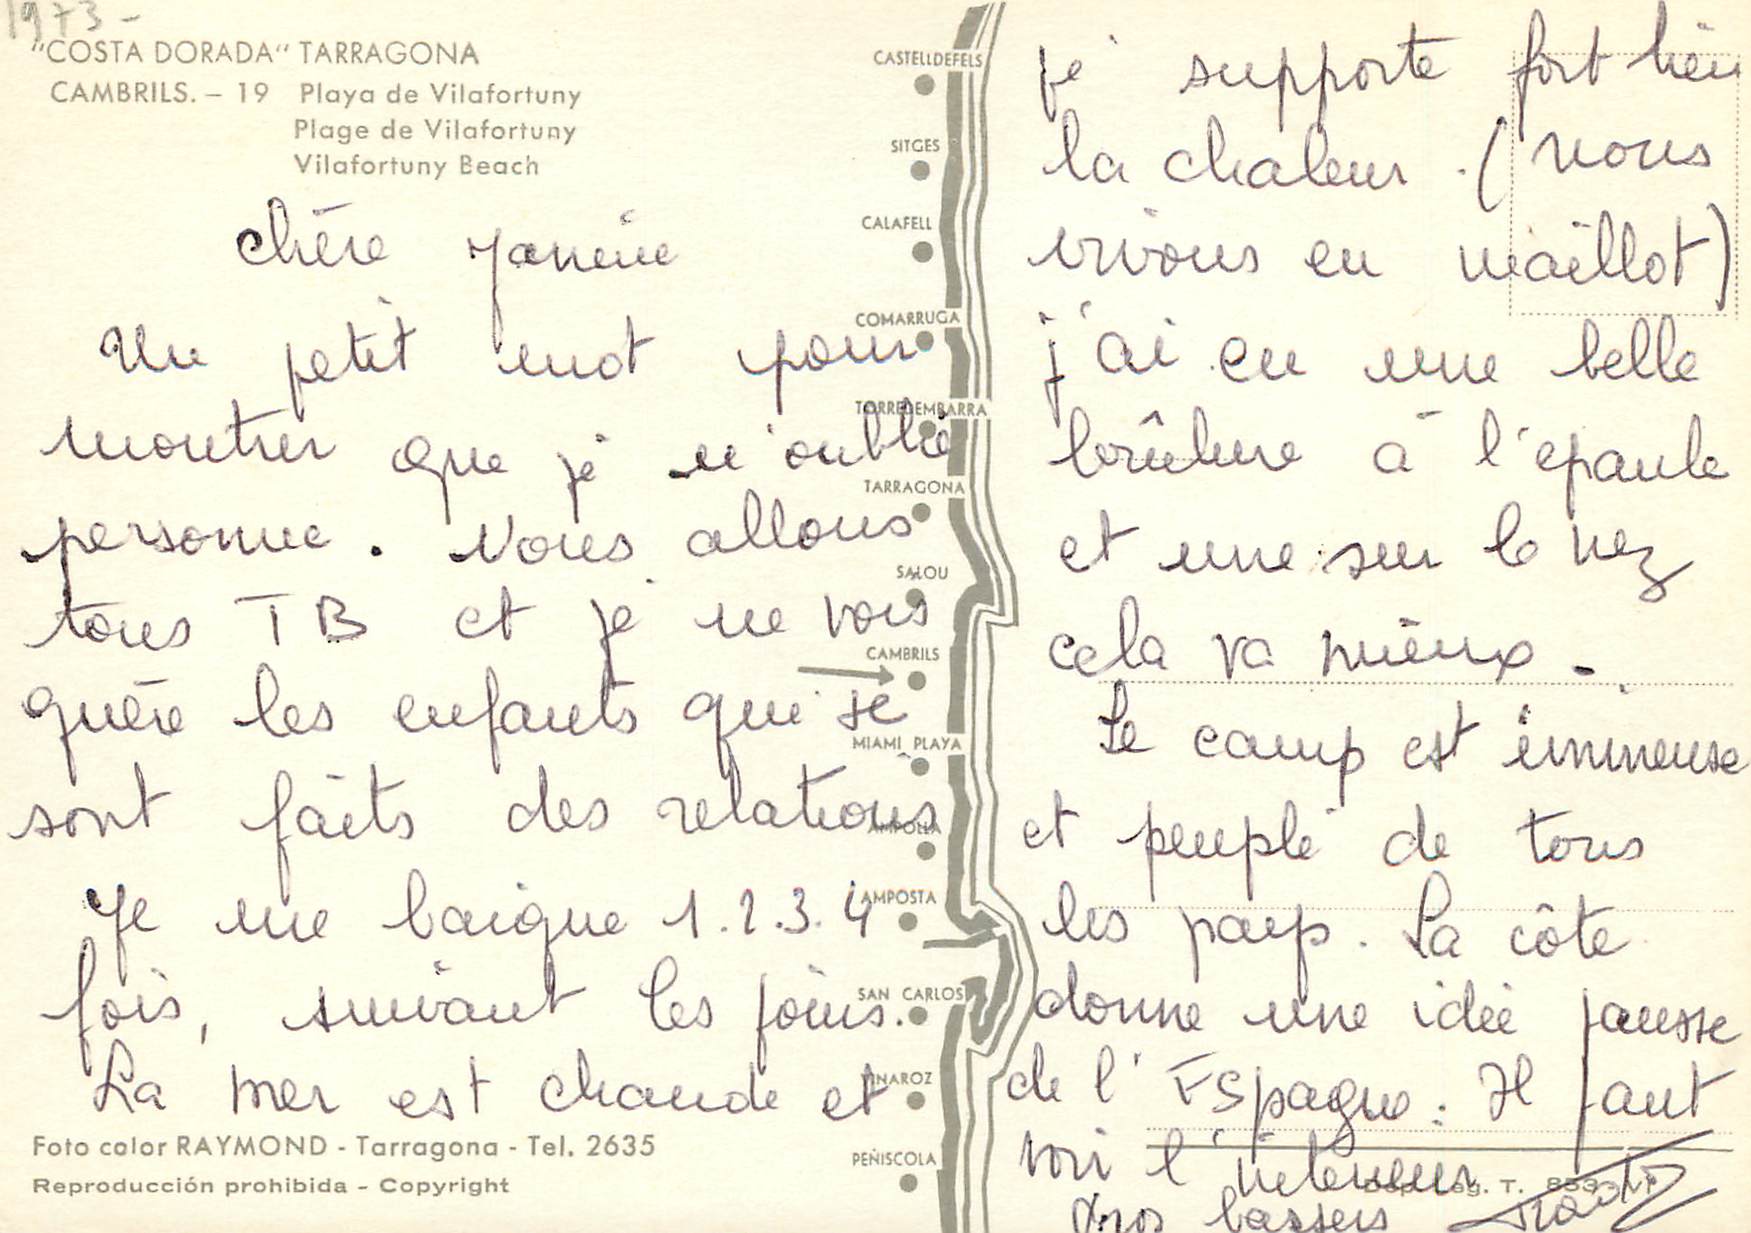 1973-
"COSTA DORADA" TARRAGONA
CAMBRILS. – 19 Playa de Vilafortuny
Plage de Vilafortuny
Vilafortuny Beach
Chère Janine
Un petit mot pour
montrer que je n'oublie
personne. Nous allons
tous TB et je ne vois
guère les enfants qui se
sont faits des relations
Je me baigne 1.2.3.4
fois, suivant les jours.
La mer est chaude et
Foto color RAYMOND - Tarragona - Tel. 2635
Reproducción prohibida - Copyright
CASTELLDEFELS
SITGES
CALAFELL
COMARRUGA
TORREDEMBARRA
TARRAGONA
SALOU
CAMBRILS
MIAMI PLAYA
AMPOLLA
AMPOSTA
SAN CARLOS
VINAROZ
PEÑISCOLA
je supporte fort bien
la chaleur. (nous
vivons en maillot)
j'ai eu une belle
brûlure à l'épaule
et une sur le nez
cela va mieux.
Le camp est immense
et peuplé de tous
les pays. La côte
donne une idée fausse
de l'Espagne. Il faut
voir l'intérieur
Gros baisers
Dep. Leg. T. 853